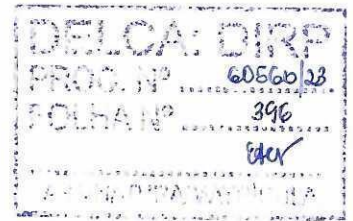 DELCA: DIRP
PROC. Nº 60560/23
FOLHA Nº 396